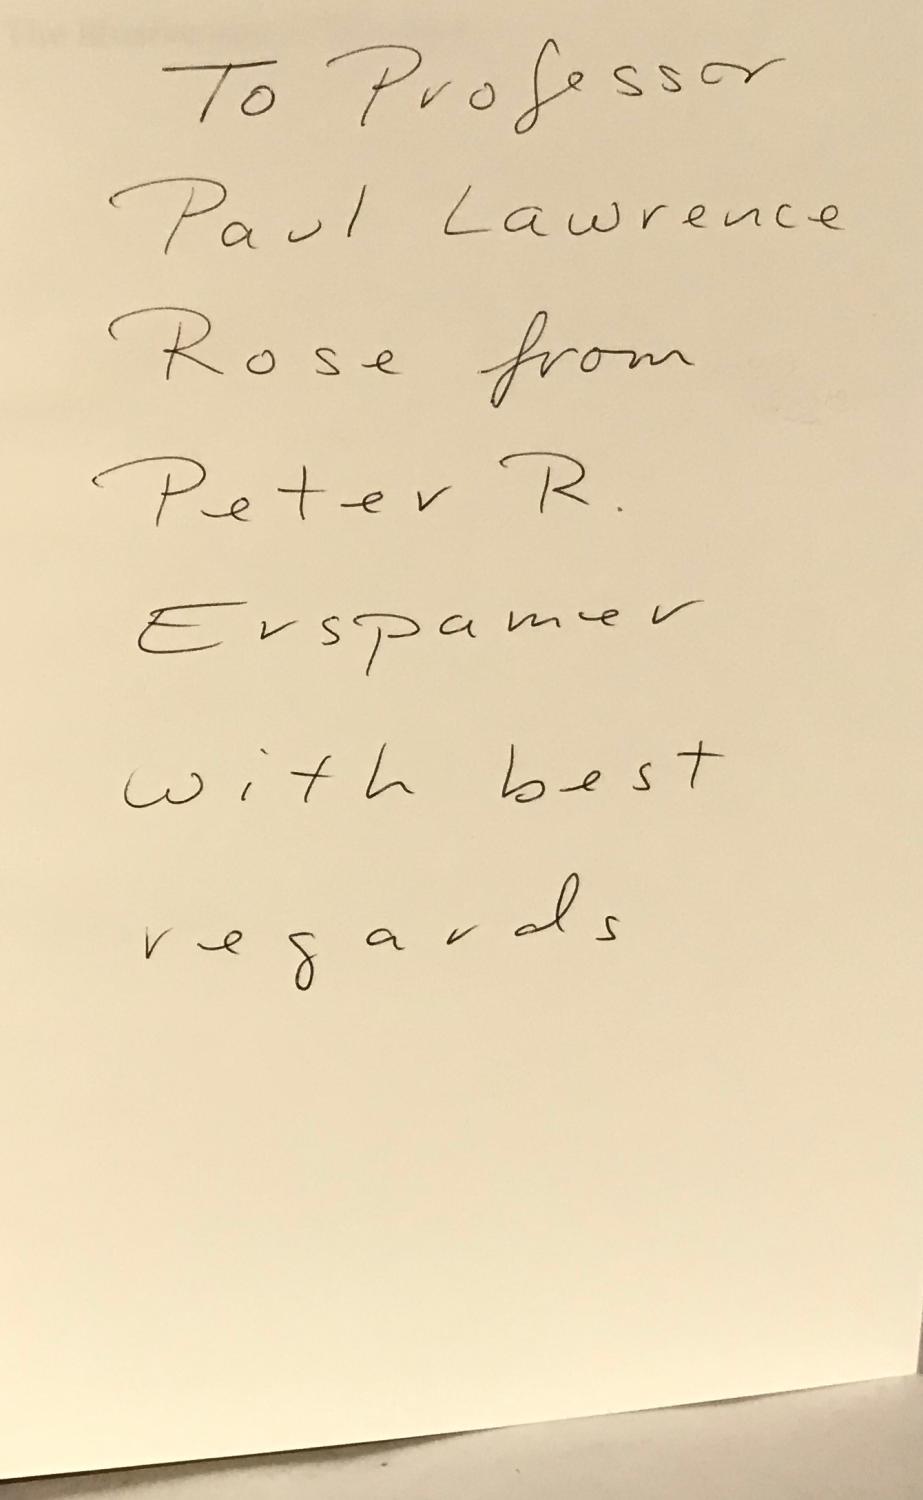 To Professor
Paul Lawrence
Rose from
Peter R.
Erspamer
with best
regards